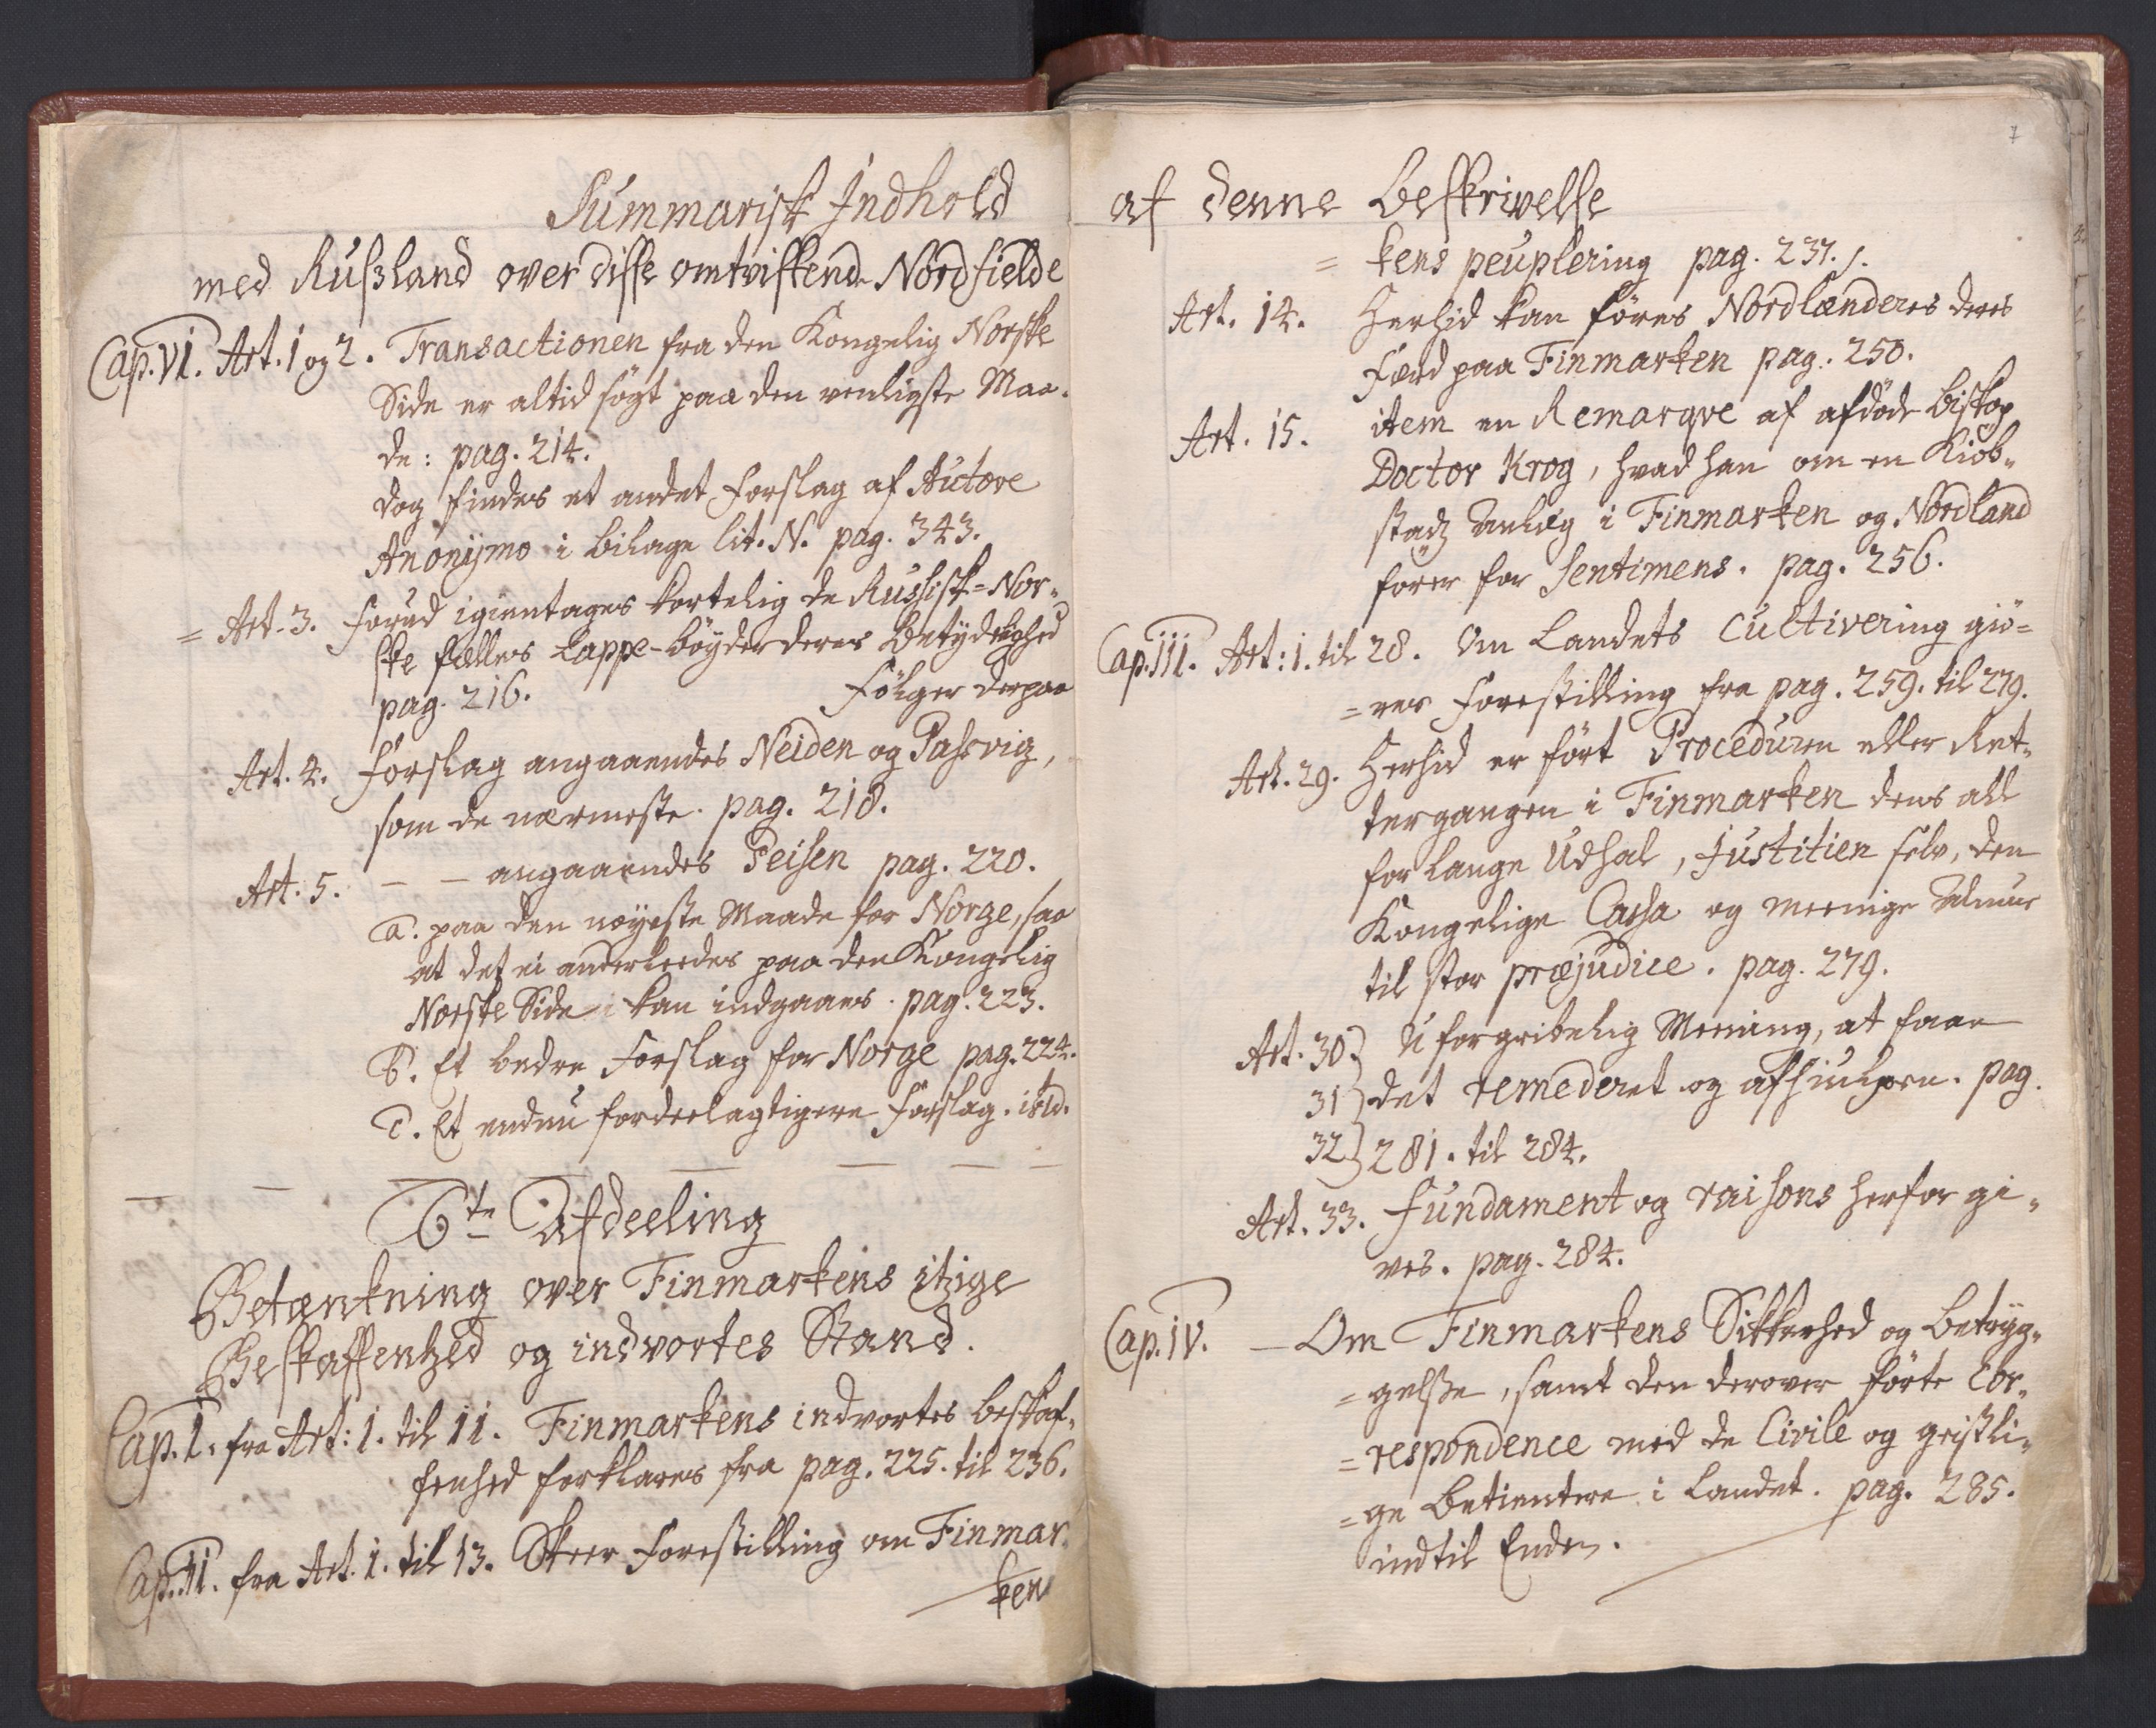 Summarisk Indhold
med Rusland over disse omtvistende Nordfielde
Cap. VI. Art. 1 og 2. Transactionen fra den Kongelig Norske
Side er altid søgt paa den venligste Maa-
de: pag. 214.
dog findes et andet Forslag af Autore
Anonymo i bilage lit. N. pag. 343.
= Art. 3. Forud igientages kortelig de Russisk=Nor-
ske fælles Lappe-bøyder deres Betydelighed
pag. 216. Følger derpaa
Art. 4. Forslag angaaendes Neiden og Pasvig,
som de nærmeste. pag. 218.
Art. 5. — — angaaendes Peisen pag. 220.
a. paa den nøyeste Maade for Norge, saa
at det ei anderledes paa den Kongelig
Norske Side kan indgaaes. pag. 223.
b. Et bedre Forslag for Norge pag. 224.
c. Et endnu fordeelagtigere Forslag. ibid.
6te Afdeeling
Betænkning over Finmarkens itzige
Beskaffenhed og indvortes Stand.
Cap. I. fra Art: 1. til 11. Finmarkens indvortes beskaf-
fenhed forklares fra pag. 225. til 236.
Cap. II. fra Art. 1. til 13. Skeer Forestilling om Finmar-
ken
7
af denne Beskrivelse
= kens peuplering pag. 237.
Art. 14. Herhid kan føres Nordlænderes deres
Færd paa Finmarken pag. 250.
Art. 15. item en Remarqve af afdøde Biskop
Doctor Krog, hvad han om en Kiøb-
stadz Anlæg i Finmarken og Nordland
fører for Sentimens. pag. 256.
Cap. III. Art: 1. til 28. Om Landets Cultivering giø=
=res Forestilling fra pag. 259. til 279.
Art. 29. Herhid er ført Proceduren eller Ret-
tergangen i Finmarken dens all
for lange Udhal, Justitien selv, den
Kongelige Cassa og meenige Almue
til stor præjudice. pag. 279.
Art. 30 } Uforgribelig Meening, at faae
31 } det remederet og afhiulpen. pag.
32 } 281. til 284.
Art. 33. Fundament og raisons herfor gi-
ves. pag. 284.
Cap. IV. — Om Finmarkens Sikkerhed og Betryg-
=gelse, samt den derover førte Cor-
=respondence med de Civile og geistli-
=ge Betientere i Landet. pag. 285.
indtil Enden.